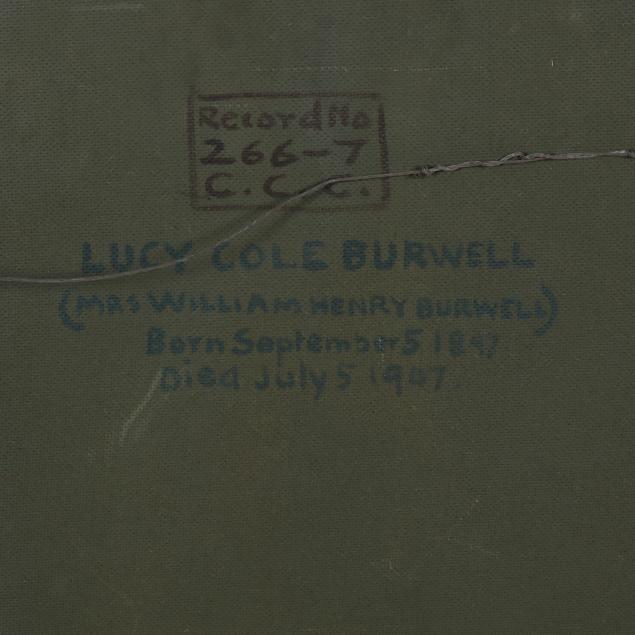 Record No
266-7
C. C. C.
LUCY COLE BURWELL
(MRS WILLIAM HENRY BURWELL)
Born September 5
Died July 5 1907